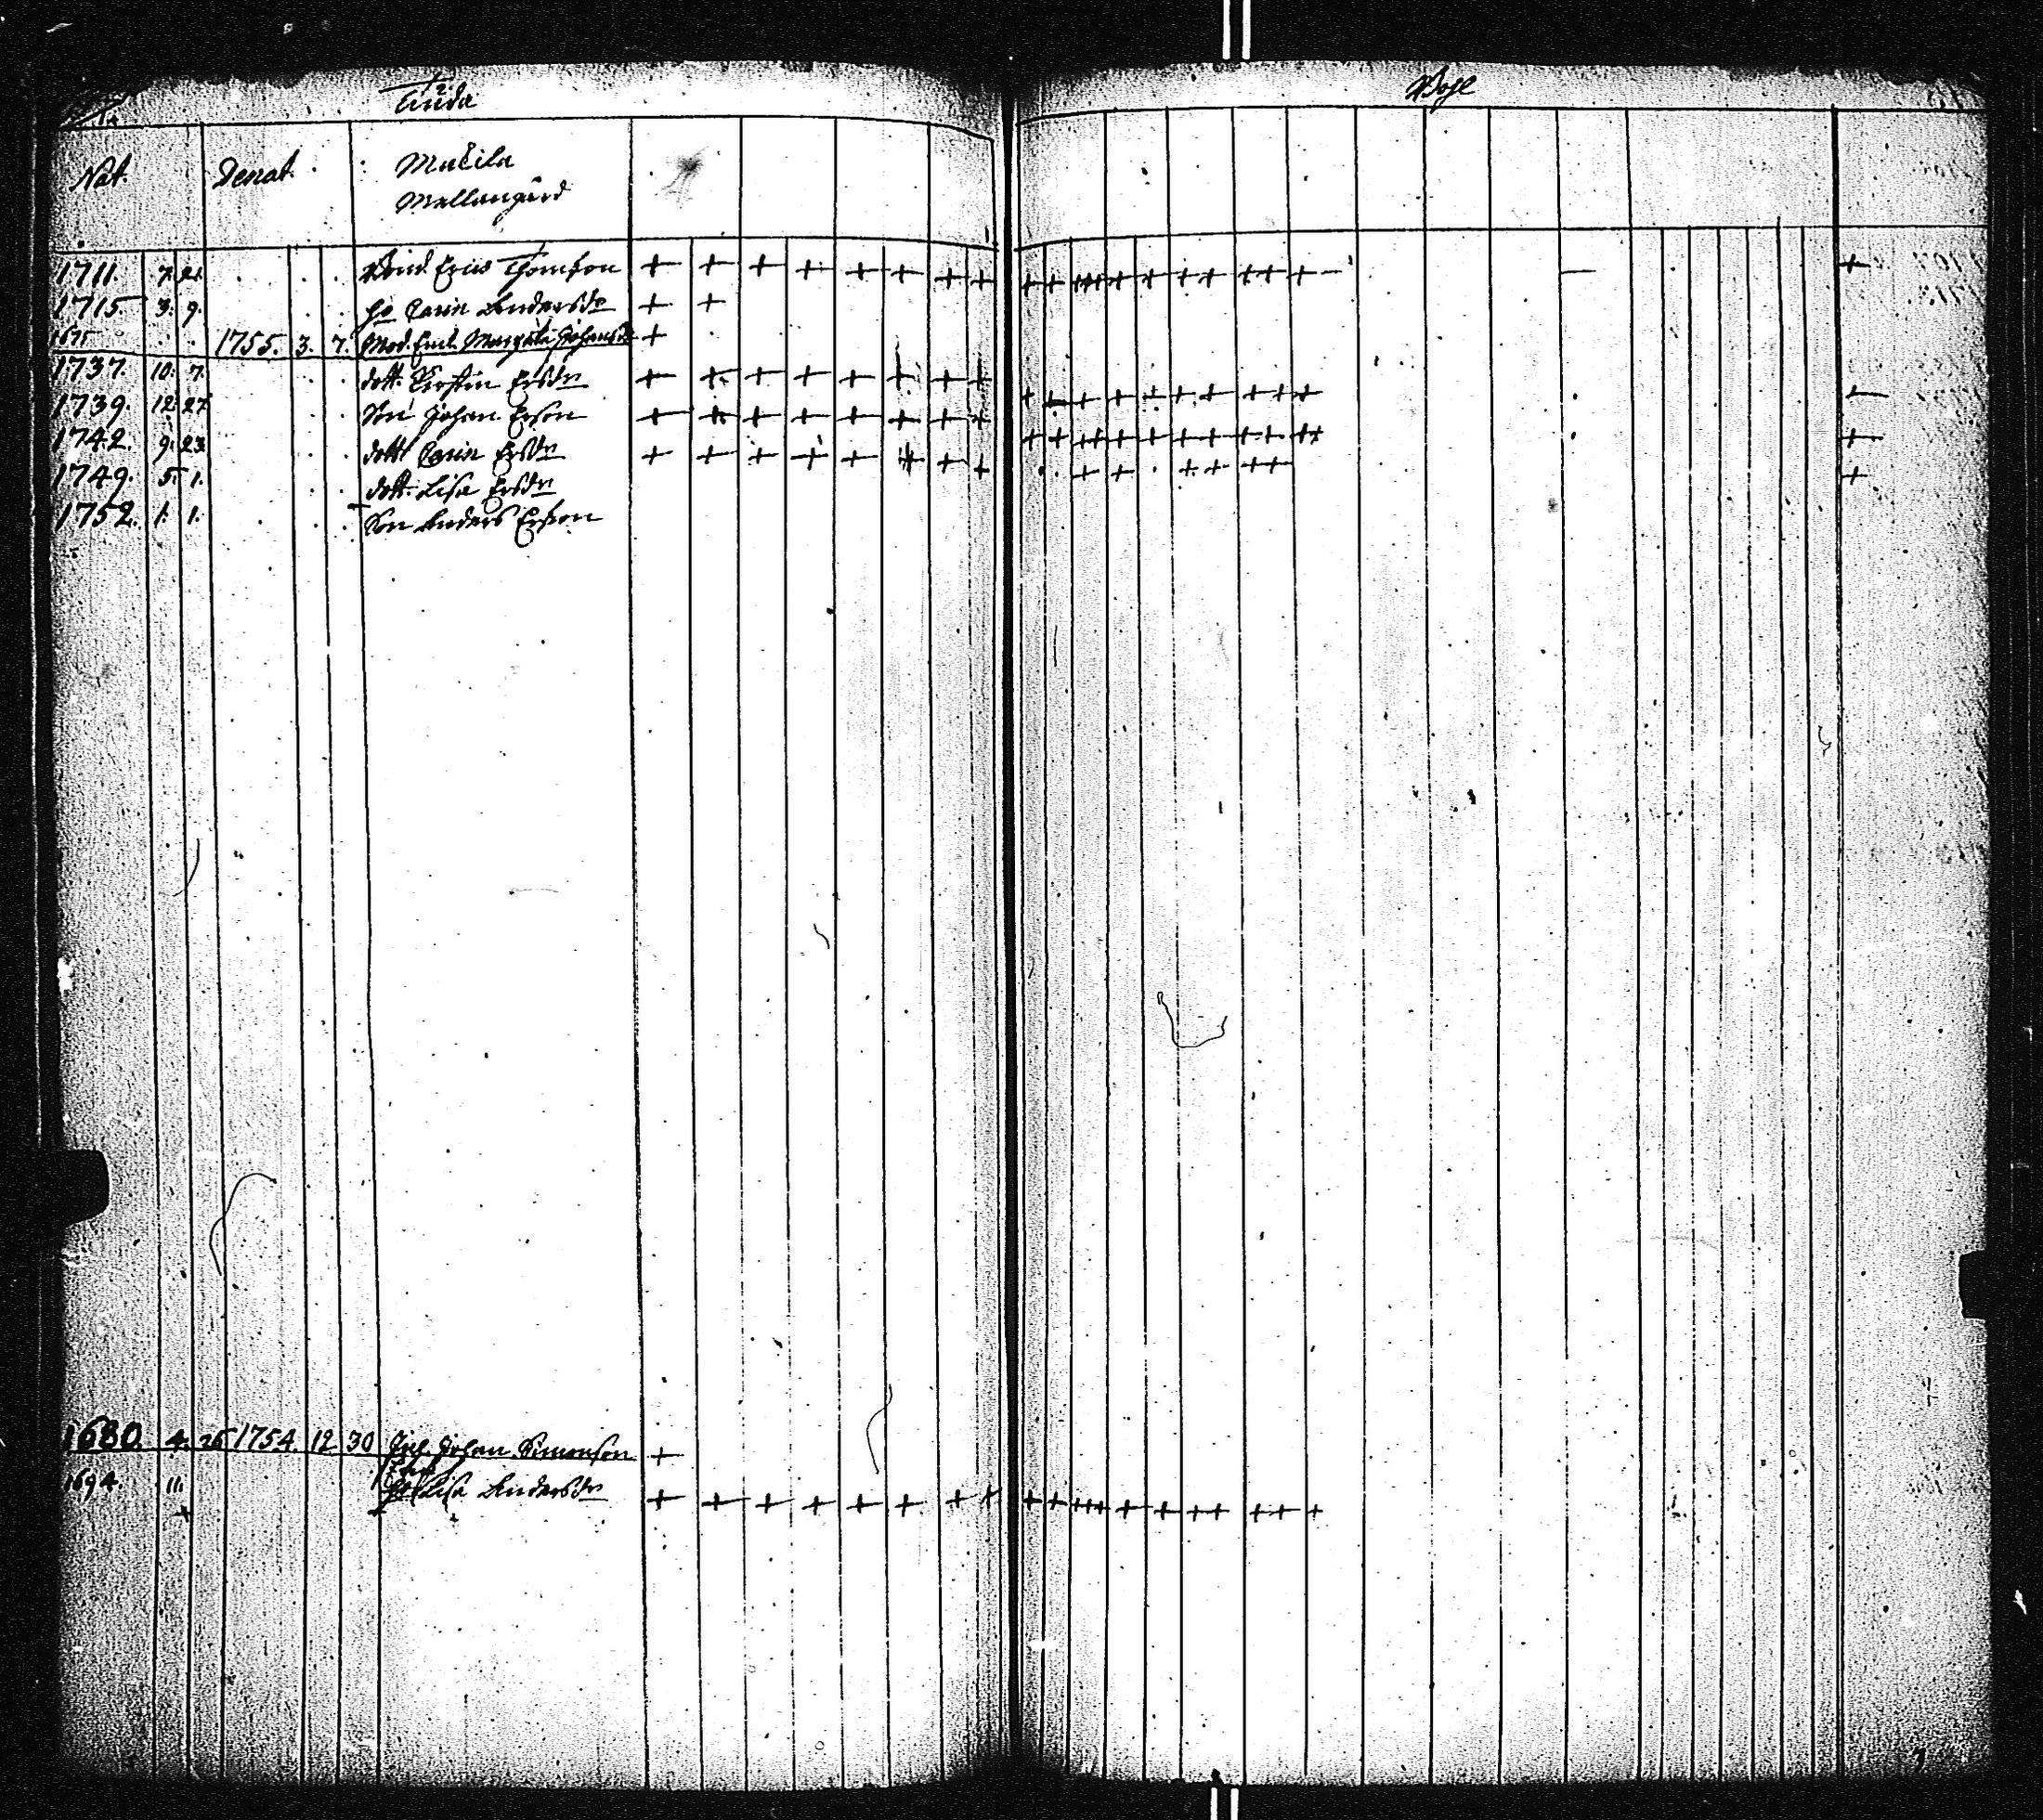 Tiuda
Boyl
Nat. Denat. Mutila
Mellangård
1711. 7. 21. Bond. Eric Thomson
1715 3. 9. Ho Carin Andersdr
1675 1755. 3. 7. Mod. Enk. Margeta Johansdr
1737. 10. 7. dott. Kirstin Ersdr
1739. 12. 27. Son Johan Erson
1742. 9. 23. dott Carin Ersdr
1749. 5. 1. dott. Lisa Ersdr
1752. 1. 1. Son Anders Erson
1680. 4. 26 1754. 12 30 Johan Simonson
1694 11. Lisa Andersdr